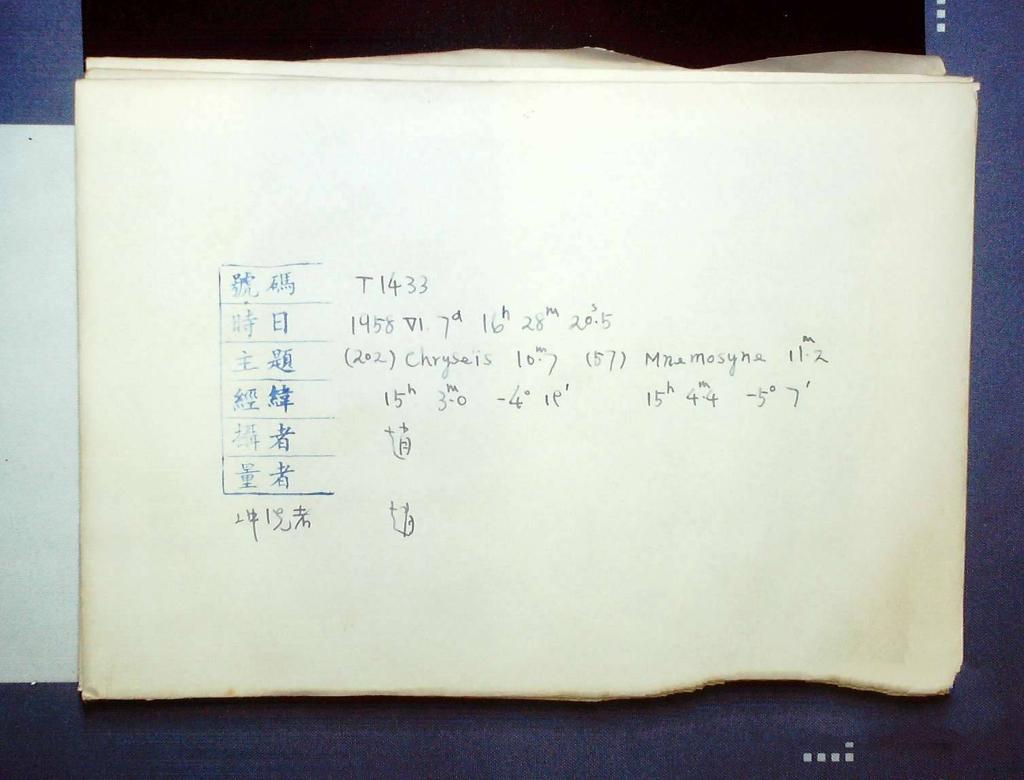 號碼 T1433
時日 1958 VI 7ᵈ 16ʰ 28ᵐ 20ˢ.5
主題 (202) Chryseis 10ᵐ.7 (57) Mnemosyne 11ᵐ.2
經緯 15ʰ 3ᵐ.0 -4° 18' 15ʰ 4ᵐ.4 -5° 7'
攝者 趙
量者
冲洗者 趙